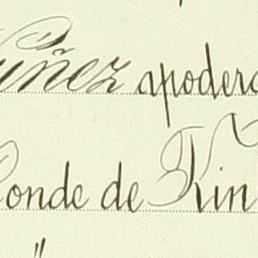 Núñez apodera
Conde de Rin
"